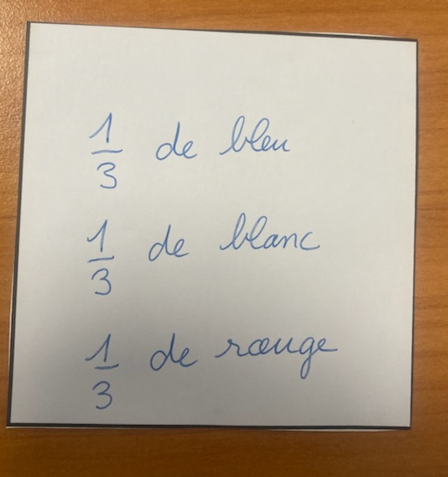 1/3 de bleu
1/3 de blanc
1/3 de rouge